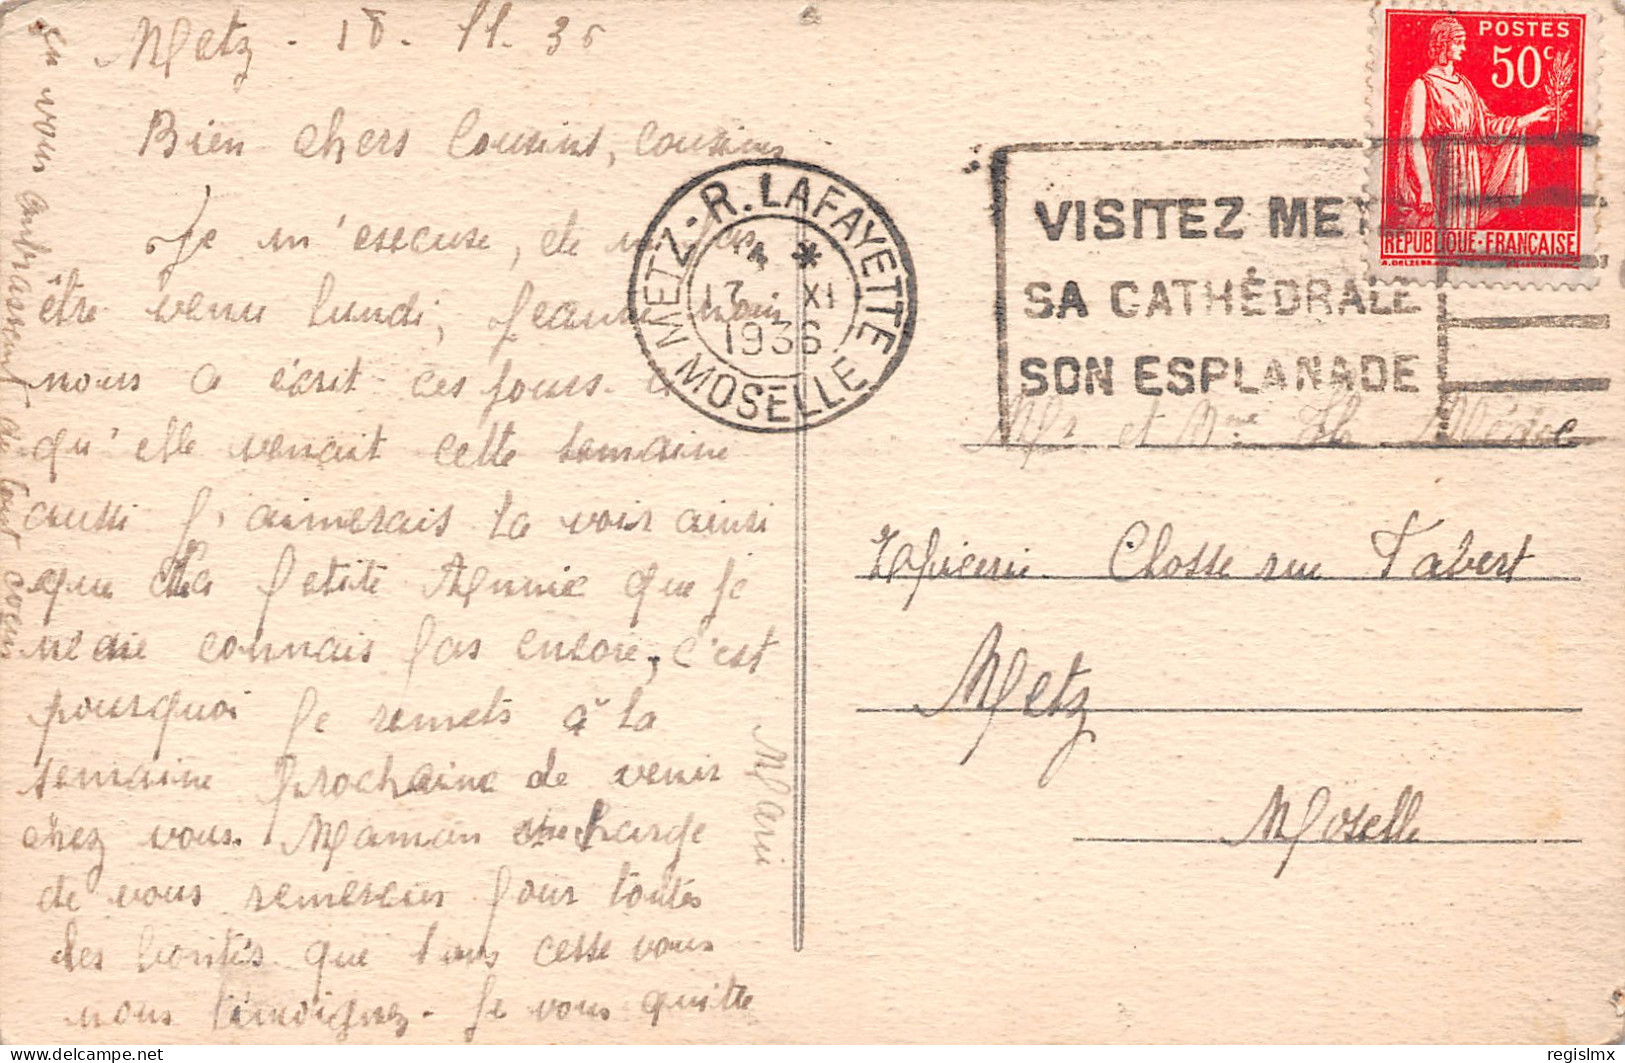 Metz - 18. 11. 36
Bien chers Cousins, Cousines
Je m'escuse, de ne pas
être venu lundi, Jeanne
nous a écrit ces jours
qu'elle venait cette semaine
aussi j'aimerais la voir ainsi
que la petite Annie que je
ne connais pas encore, c'est
pourquoi je remets à la
semaine prochaine de venir
chez vous. Maman me charge
de vous remercier pour toutes
les bontés que sans cesse vous
nous témoignez. Je vous quitte
en vous embrassant de tout coeur
Mani
METZ-R. LAFAYETTE
17 XI
1936
MOSELLE
VISITEZ METZ
SA CATHÉDRALE
SON ESPLANADE
POSTES
50c
REPUBLIQUE-FRANCAISE
Mr et Mme
Epicerie Closse rue Tabert
Metz
Moselle
delcampe.net
regislmx